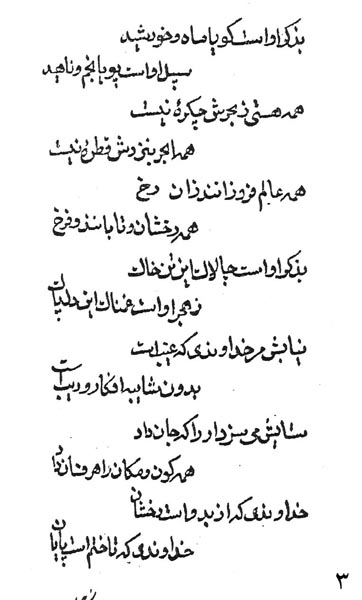 بذکر او است گویا ماه و خورشید
سبیل او است پویا انجم و ناهید
همه هستی ز بحرش چکرهٔ نیست
همه ابحر بنزدش قطرهٔ نیست
همه عالم فروزانند زان رخ
همه رخشان و تابانند و فرخ
بذکر او است چالاک این تن خاک
ز هجر او است غمناک این دل پاک
نیایش مر خداوندی که غیب است
بدون شایبه افکار و ریب است
ستایش می سزد او را که جان داد
همه کون و مکان را داد
خداوندی که از بدو است رخشان
خداوندی که تا ختم است پایان
۳